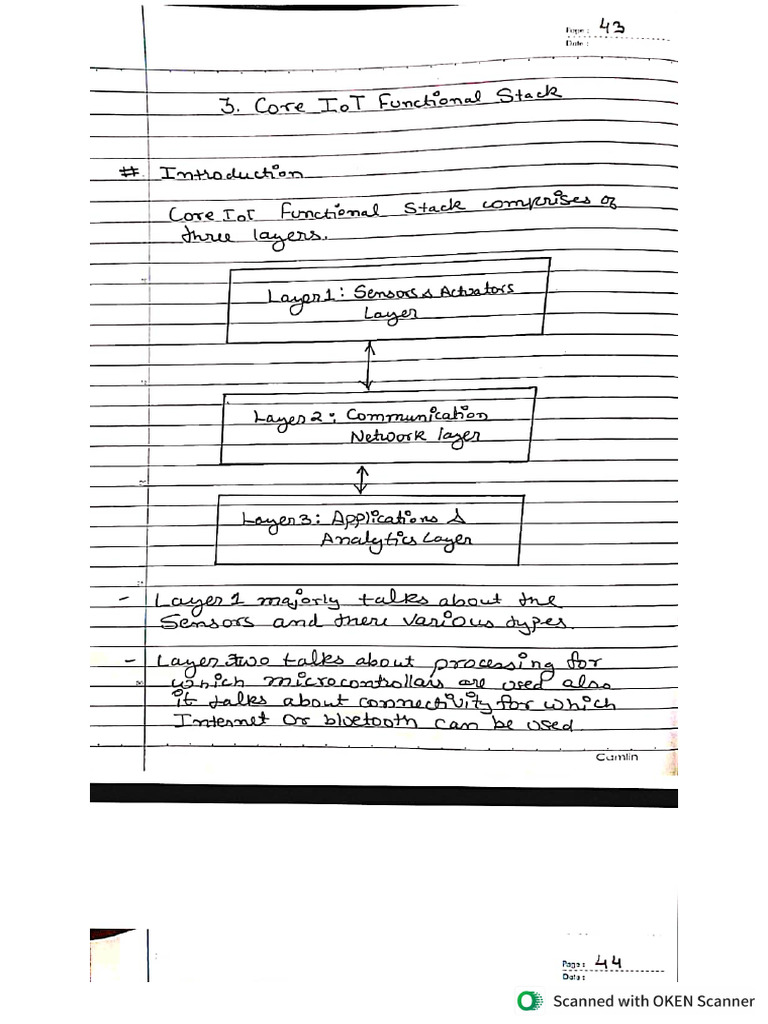 Page: 43
Date:
3. Core IoT Functional Stack
# Introduction
Core IoT Functional Stack comprises of
three layers.
Layer 1: Sensors & Actuators
Layer
Layer 2: Communication
Network layer
Layer 3: Applications &
Analytics Layer
- Layer 1 majorly talks about the
Sensors and there various types.
- Layer two talks about processing for
which microcontrollars are used also
it talks about connectivity for which
Internet or bluetooth can be used
Camlin
Page: 44
Date:
Scanned with OKEN Scanner